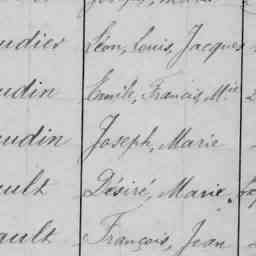 udier Léon, Louis, Jacques
udin Emile, Francis, M.ie
udin Joseph, Marie
ault Désiré, Marie,
ault François, Jean